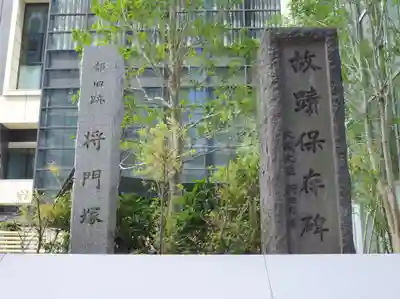 都旧跡
将門塚
故蹟保存碑